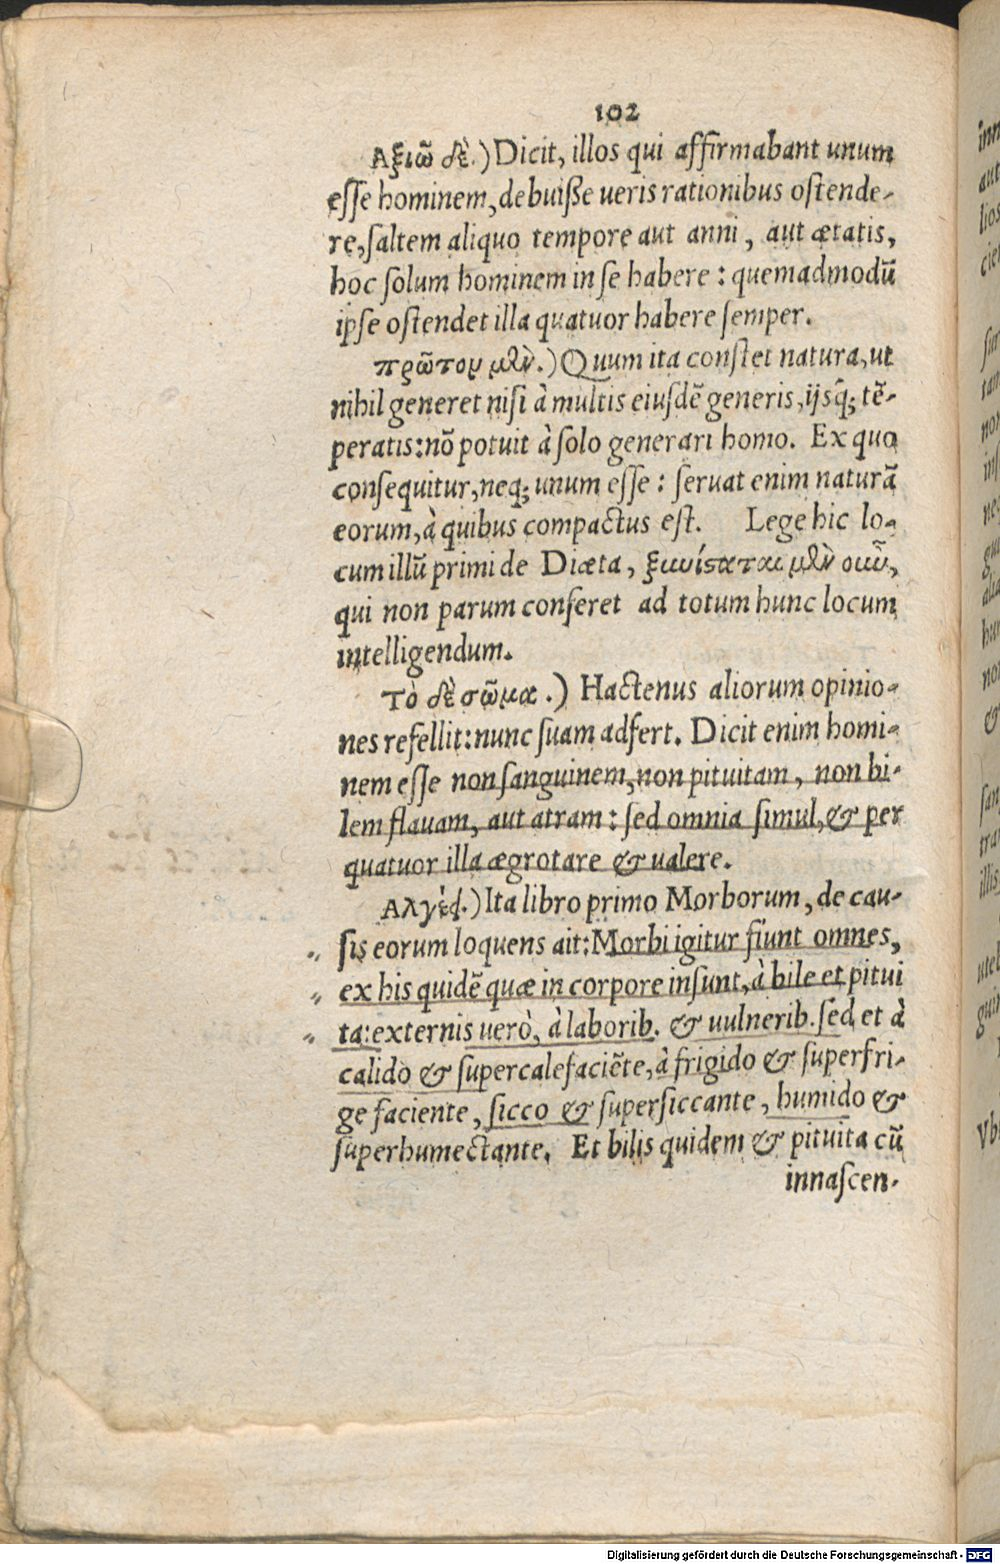 102
Αξιῶ δὲ.) Dicit, illos qui affirmabant unum
eſſe hominem, debuiſſe ueris rationibus oſtende-
re, ſaltem aliquo tempore aut anni, aut ætatis,
hoc ſolum hominem in ſe habere: quemadmodū
ipſe oſtendet illa quatuor habere ſemper.
πρῶτον μὲν.) Quum ita conſtet natura, ut
nihil generet niſi à multis eiuſdē generis, ijsq̃; tē-
peratis: nō potuit à ſolo generari homo. Ex quo
conſequitur, neq; unum eſſe: ſeruat enim naturā
eorum, à quibus compactus eſt. Lege hic lo-
cum illū primi de Diæta, ξυνίσταται μὲν οὖν,
qui non parum conferet ad totum hunc locum
intelligendum.
τὸ δὲ σῶμα.) Hactenus aliorum opinio-
nes refellit: nunc ſuam adfert. Dicit enim homi-
nem eſſe non ſanguinem, non pituitam, non bi-
lem flauam, aut atram: ſed omnia ſimul, & per
quatuor illa ægrotare & ualere.
Αλγέει.) Ita libro primo Morborum, de cau-
ſis eorum loquens ait: Morbi igitur fiunt omnes,
ex his quidē quæ in corpore inſunt, à bile et pitui
ta: externis uerò, à laborib. & uulnerib. ſed et à
calido & ſupercalefaciēte, à frigido & ſuperfri-
ge faciente, ſicco & ſuperſiccante, humido &
ſuperhumectante. Et bilis quidem & pituita cū
innaſcen-
Digitalisierung gefördert durch die Deutsche Forschungsgemeinschaft - DFG